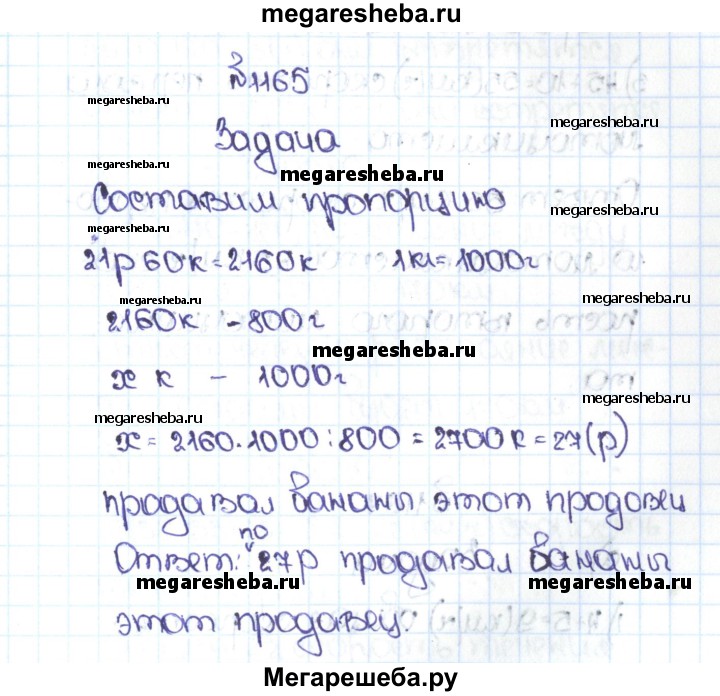 megaresheba.ru
№1165
megaresheba.ru
megaresheba.ru
Задача
megaresheba.ru
megaresheba.ru
Составим пропорцию
megaresheba.ru
21р 60к = 2160к 1кг = 1000г
megaresheba.ru
megaresheba.ru
2160к - 800г
megaresheba.ru
х к - 1000г
megaresheba.ru
megaresheba.ru
х = 2160·1000:800 = 2700к = 27(р)
продавал бананы этот продовец
по
Ответ: 27р продавал бананы
megaresheba.ru
megaresheba.ru
этот продавец.
Мегарешеба.ру